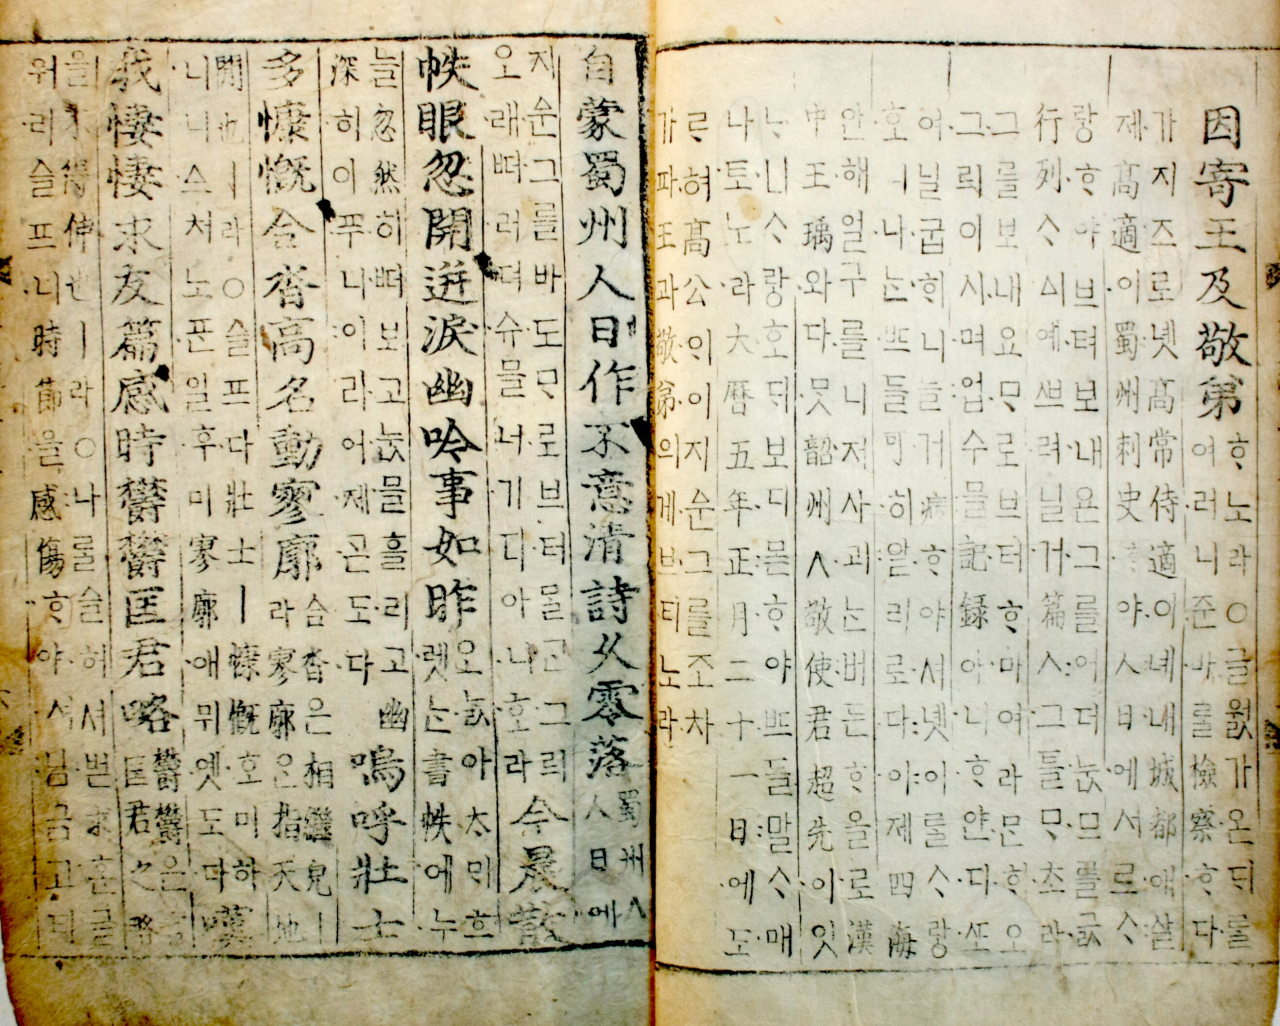 因寄王及敬弟
ᄒᆞ노라○글월가온ᄃᆡᄅᆞᆯ
여러니준바ᄅᆞᆯ檢察ᄒᆞ다
가지즈로녯高常侍適이녜내城都애살
제高適이蜀州刺史ᄒᆞ야人日에서르ᄉᆞ
랑ᄒᆞ야브텨보내욘그를어더눖므를긇
行列ᄉᆞᅀᅵ예쓰려닐거篇ㅅ그틀ᄆᆞᄎᆞ라
그를보내요ᄆᆞ로브터ᄒᆞ마여라믄ᄒᆡ오
그뢰이시며업수믈記錄아니ᄒᆞ얀디ᄯᅩ
여닐굽ᄒᆡ니늘거病ᄒᆞ야셔녯이ᄅᆞᆯᄉᆞ랑
호ㅣ나ᄂᆞᆫᄠᅳ들可히알리로다이제四海
안해얼구를니저사괴ᄂᆞᆫ버든ᄒᆞ올로漢
中王瑀와다ᄆᆞᆺ韶州ㅅ敬使君超先이잇
ᄂᆞ니ᄉᆞ랑호ᄃᆡ보디몯ᄒᆞ야ᄠᅳ들말ᄉᆞ매
나토노라大曆五年正月二十一日에도
ᄅᆞ혀高公ᄋᆡ이지ᅀᅮᆫ그를조차
가파王과敬弟의게브티노라
自蒙蜀州人日作不意清詩久零落
蜀州ㅅ
人日에
지ᅀᅮᆫ그를바도ᄆᆞ로브터ᄆᆞᆯᄀᆞᆫ그리
오래ᄠᅥ러뎌슈믈너기디아니호라
今晨散
帙眼忽開迸淚幽吟事如昨
오ᄂᆞᆳ아ᄎᆞᄆᆡ흐
렛ᄂᆞᆫ書帙에누
늘忽然히ᄠᅥ보고눖믈흘리고幽
深히이푸니이리어제ᄀᆞᆮ도다
嗚呼壯士
多慷慨合沓高名動寥廓
合沓은相繼皃ㅣ
라寥廓은指天地
間也ㅣ라○슬프다壯士ㅣ慷慨호미하
니니ᅀᅥ노ᄑᆞᆫ일후미寥廓애뮈엿도다
嘆
我悽悽求友篇感時鬱鬱匡君略
鬱鬱은
匡君之略
을不得伸也ㅣ라○나ᄅᆞᆯ슬허셔벋求혼글
워리슬프니時節을感傷ᄒᆞ야셔님금고티